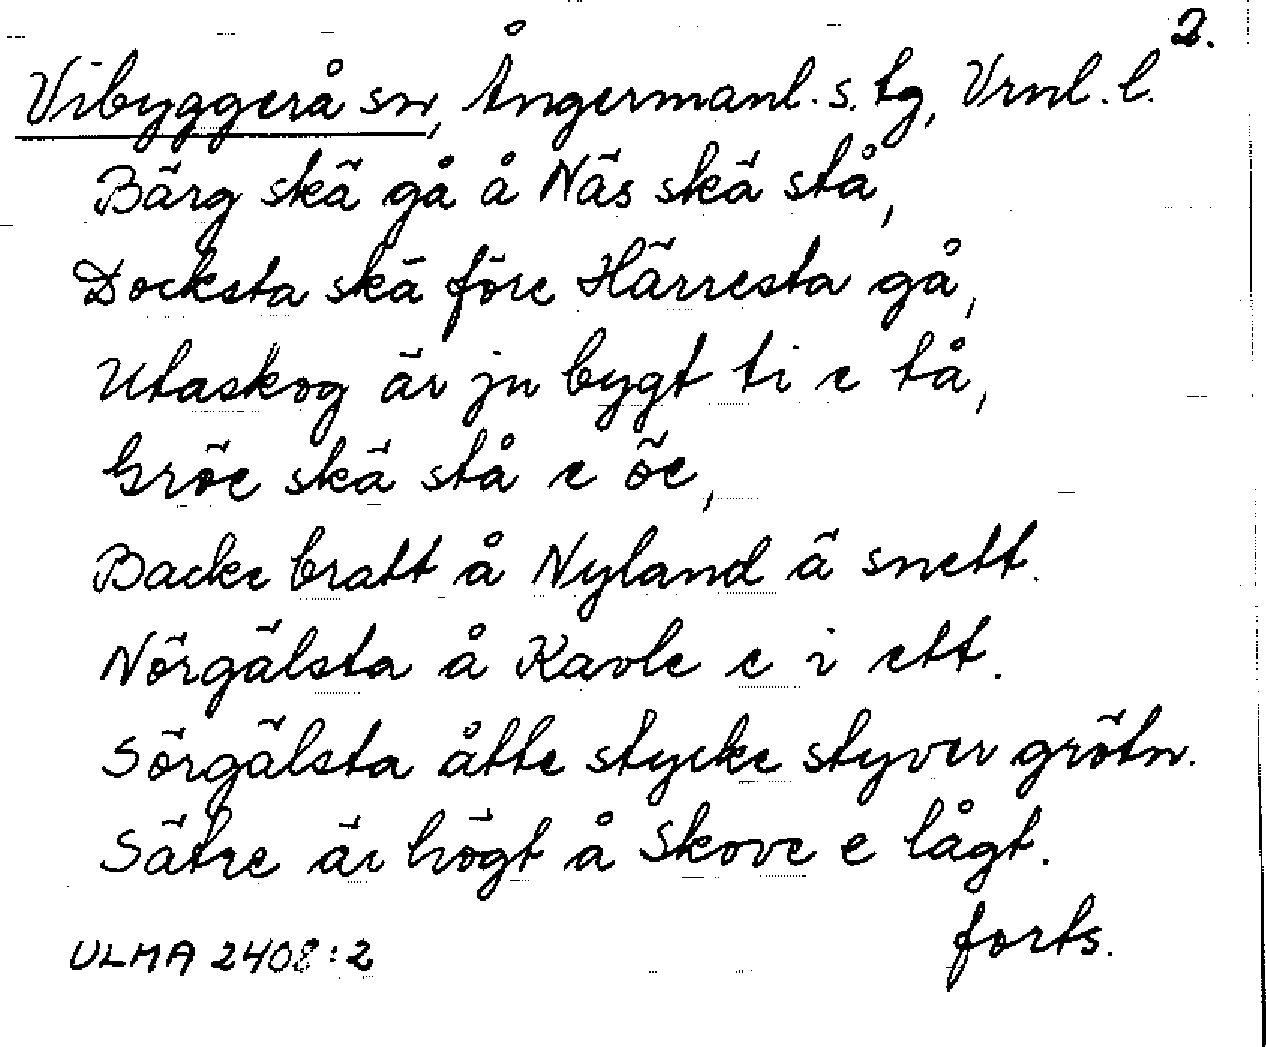 2.
Vibyggerå sn, Ångermanl. s. tg, Vrnl. l.
Bärg skä gå å Näs skä stå,
Docksta skä före Härresta gå,
Utaskog är ju bygt ti e tå,
Gröe skä stå e öe,
Backe bratt å Nyland ä snett.
Nörgälsta å Kavle e i ett.
Sörgälsta åtte stycke styver grötn.
Sätre är högt å Skove e lågt.
forts.
ULMA 2408:2